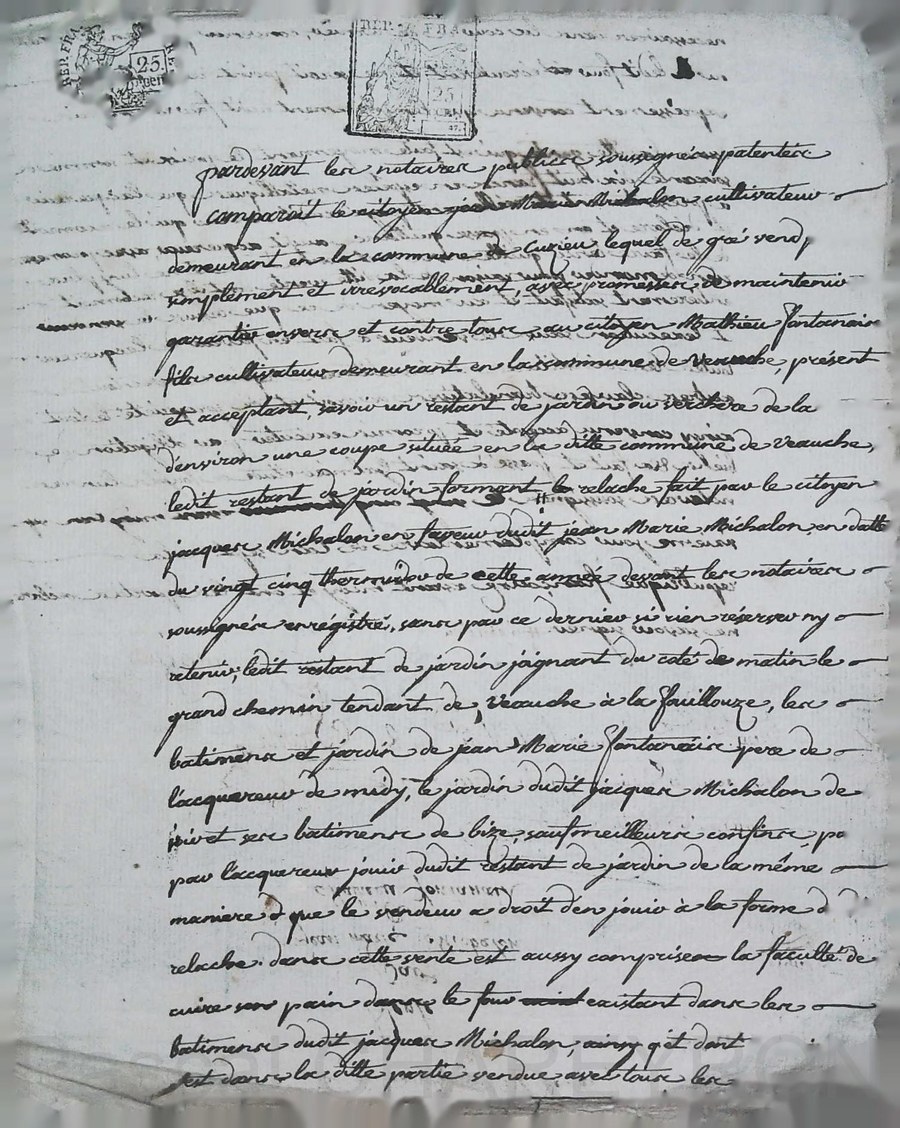 REP. FRA.
25.
REP. FRA.
25.
pardevant les notaires publics soussignés patentés
comparoit le citoyen jean Marie Michalon cultivateur
demeurant en la commune de Cuzieu lequel de gré vend
simplement et irrevocablement, avec promesse de maintenir
garantir envers et contre tous, au citoyen Mathieu fontanais
fils cultivateur demeurant en la commune de veauche, présent
et acceptant, savoir un restant de jardin ou verchere de la
d'environ une coupe située en la ditte commune de veauche,
ledit restant de jardin formant le relache fait par le citoyen
jacques Michalon en faveur dudit jean Marie Michalon, en datte
du vingt cinq thermidor de cette année devant les notaires
soussignés enrégistré, sans par ce dernier si rien réserver ny
retenir, ledit restant de jardin joignant du coté de matin le
grand chemin tendant de veauche à la fouillouze, les
batimens et jardin de jean Marie fontanais pere de
l'acquereur de midy, le jardin dudit jacques Michalon de
soir et ses batimens de bize, sauf meilleurs confins, po
par l'acquereur jouir dudit restant de jardin de la même
maniere d que le vendeur a droit d'en jouir à la forme d
relache. dans cette vente est aussy comprise la faculté de
cuire son pain dans le four existant dans les
batimens dudit jacques Michalon, ainsy q'et dont
est dans la ditte partie vendue avec tous les